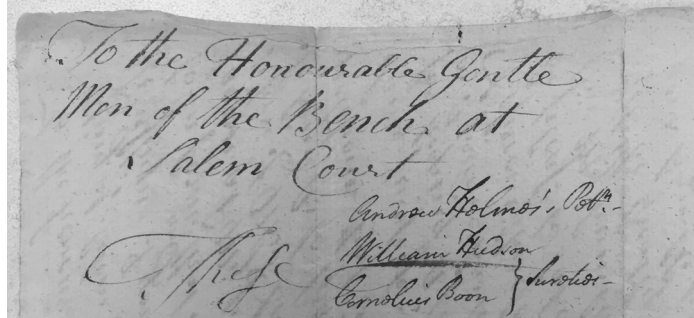 To the Honourable Gentle
Men of the Bench at
Salem Court
Andrew Holmes's Petn.
These
William Hudson
Cornelius Boon } Sureties